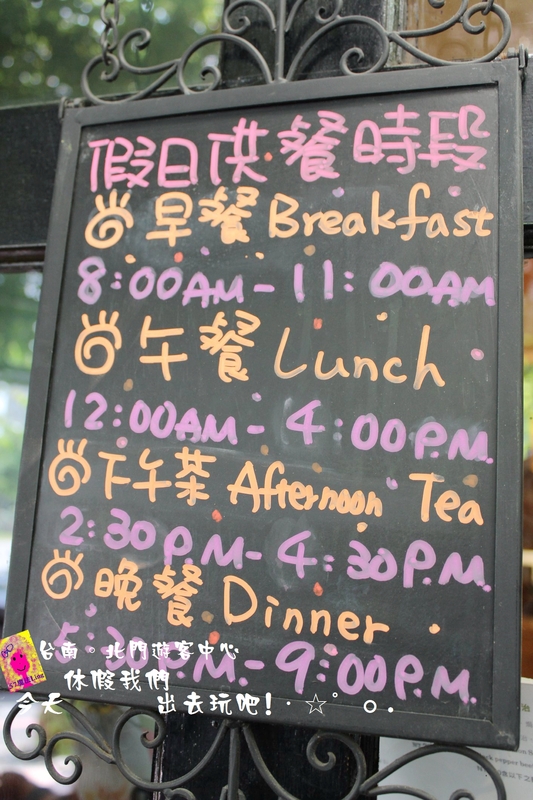 假日供餐時段
早餐 Breakfast
8:00AM-11:00AM
午餐 Lunch
12:00AM-4:00P.M.
下午茶 Afternoon Tea
2:30P.M-4:30P.M.
晚餐 Dinner
5:30P.M.-9:00P.M.
台南。北門遊客中心
休假我們
今天 出去玩吧!·☆°o.